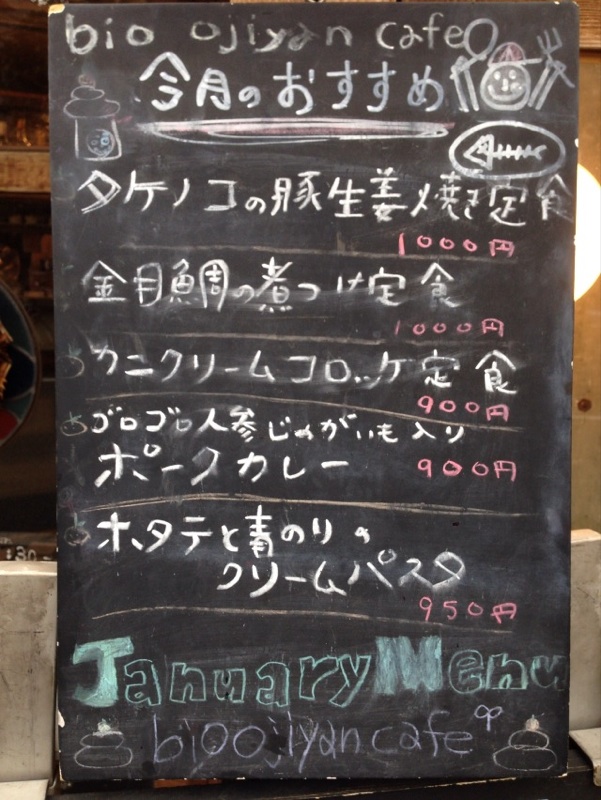 bio ojiyan cafe
今月のおすすめ
タケノコの豚生姜焼き定食
1000円
金目鯛の煮つけ定食
1000円
カニクリームコロッケ定食
900円
ゴロゴロ人参じゃがいも入り
ポークカレー 900円
ホタテと青のりの
クリームパスタ
950円
January Menu
bio ojiyan cafe